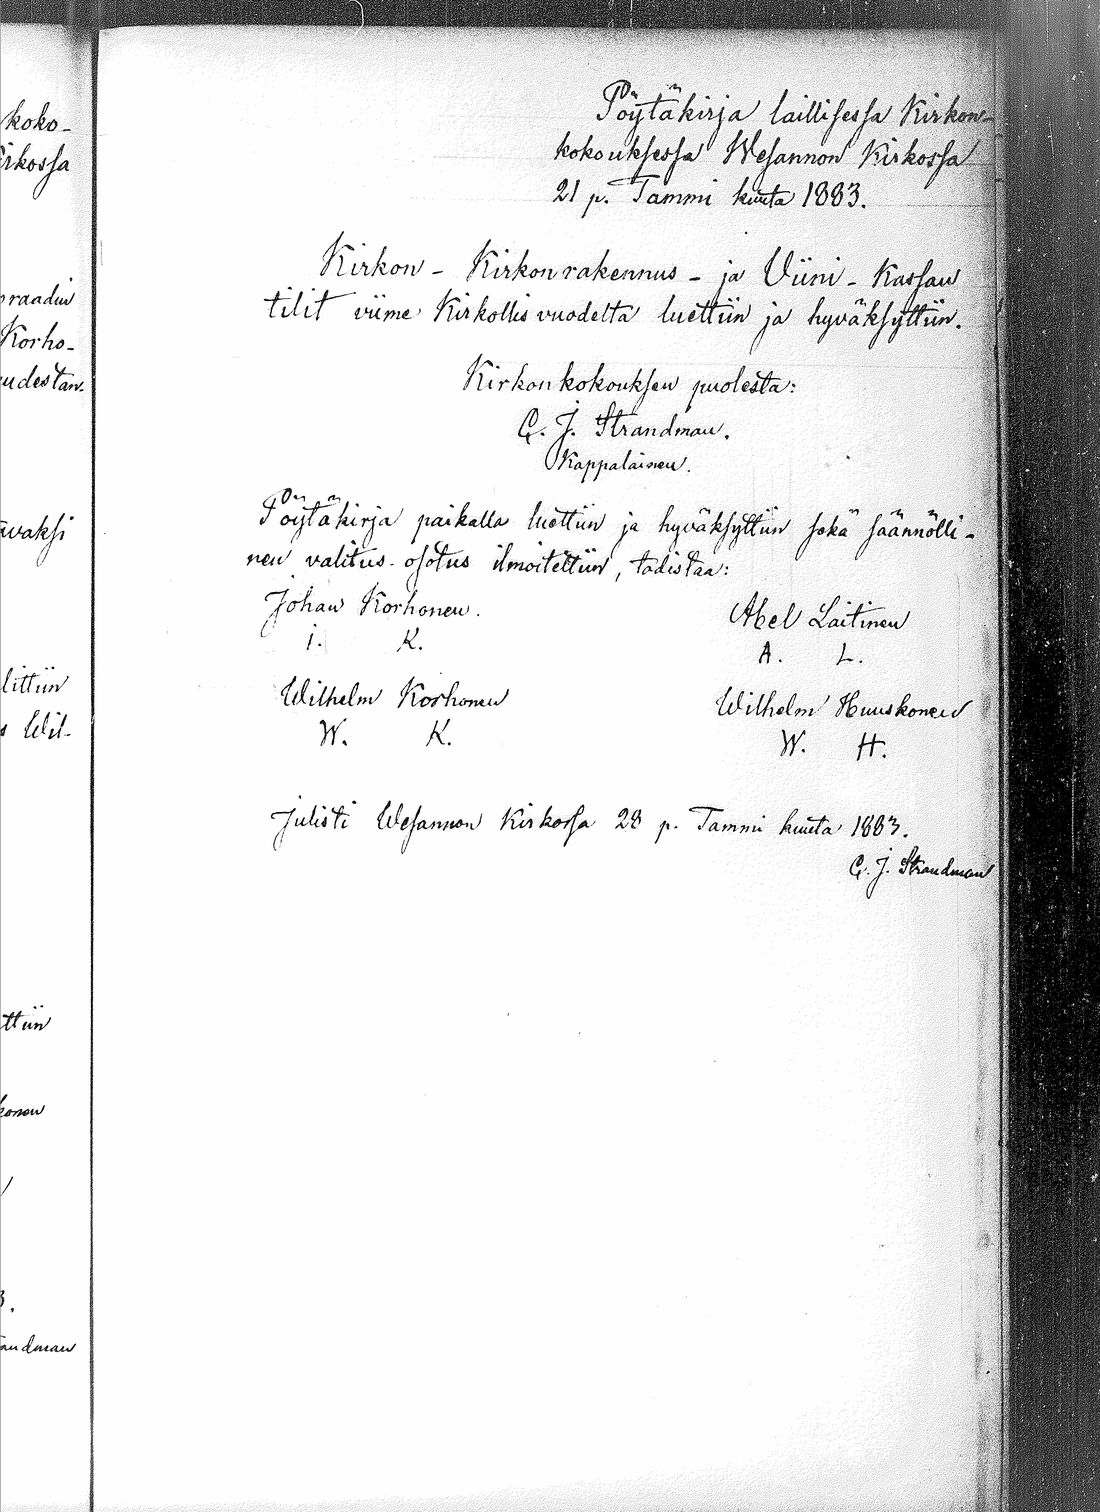 koko-
irkossa
raadin
Korho-
udestan.
vaksi
littiin
s Wil-
ttiin
konen
3.
andman
Pöytäkirja laillisessa Kirkon-
kokouksessa Wesannon Kirkossa
21 p. Tammi kuuta 1883.
Kirkon - Kirkonrakennus - ja Viini - Kassan
tilit viime Kirkollis vuodelta luettiin ja hyväksyttiin.
Kirkonkokouksen puolesta:
C. J. Strandman.
Kappalainen.
Pöytäkirja paikalla luettiin ja hyväksyttiin sekä säännölli-
nen valitus-osotus ilmoitettiin, todistaa:
Johan Korhonen.
Abel Laitinen
I. K.
A. L.
Wilhelm Korhonen
Wilhelm Huuskonen
W. K.
W. H.
Julisti Wesannon Kirkossa 28 p. Tammi kuuta 1883.
C. J. Strandman